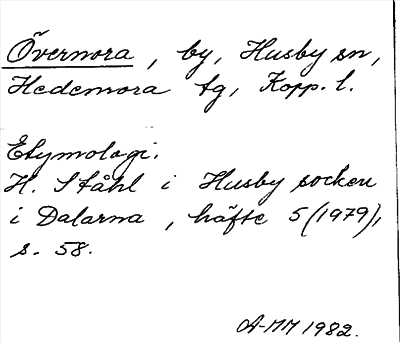 Övernora, by, Husby sn,
Hedemora tg, Kopp. l.
Etymologi:
H. Ståhl i Husby socken
i Dalarna, häfte 5 (1979),
s. 58.
A-MM 1982.